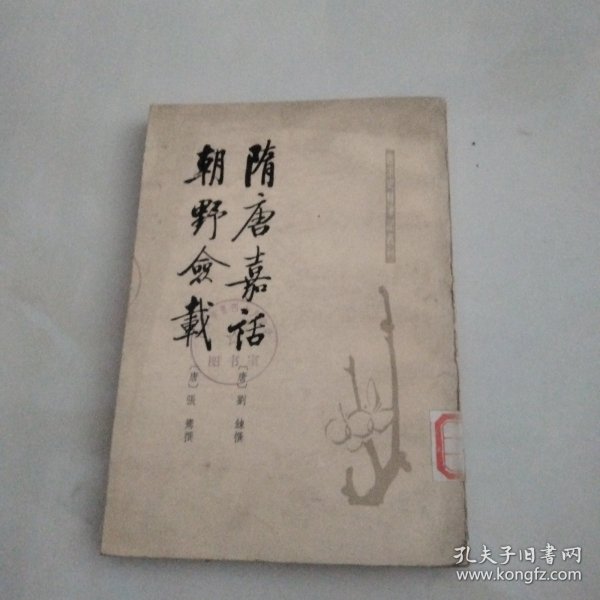 隋唐嘉話
〔唐〕劉餗撰
朝野僉載
〔唐〕張鷟撰
图书室
孔夫子旧书网
www.kongfz.com